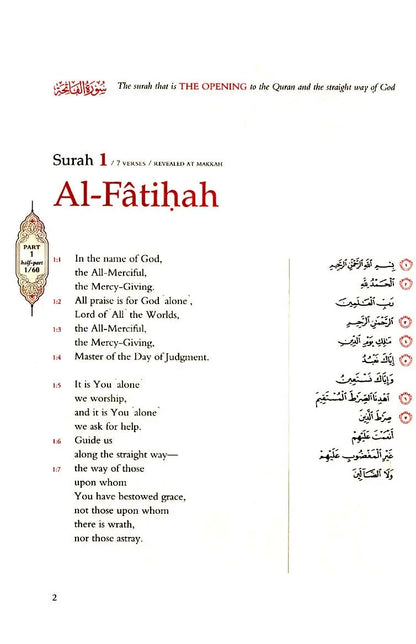 سُورَةُ الفَاتِحَةِ The surah that is THE OPENING to the Quran and the straight way of God
Surah 1 / 7 VERSES / REVEALED AT MAKKAH
Al-Fâtiḥah
PART
1
half-part
1/60
1:1 In the name of God,
the All-Merciful,
the Mercy-Giving.
1:2 All praise is for God ˹alone˺,
Lord of ˹All˺ the Worlds,
1:3 the All-Merciful,
the Mercy-Giving,
1:4 Master of the Day of Judgment.
1:5 It is You ˹alone˺
we worship,
and it is You ˹alone˺
we ask for help.
1:6 Guide us
along the straight way—
1:7 the way of those
upon whom
You have bestowed grace,
not those upon whom
there is wrath,
nor those astray.
بِسْمِ ٱللَّهِ ٱلرَّحْمَٰنِ ٱلرَّحِيمِ
ٱلْحَمْدُ لِلَّهِ
رَبِّ ٱلْعَٰلَمِينَ
ٱلرَّحْمَٰنِ ٱلرَّحِيمِ
مَٰلِكِ يَوْمِ ٱلدِّينِ
إِيَّاكَ نَعْبُدُ
وَإِيَّاكَ نَسْتَعِينُ
ٱهْدِنَا ٱلصِّرَٰطَ ٱلْمُسْتَقِيمَ
صِرَٰطَ ٱلَّذِينَ
أَنْعَمْتَ عَلَيْهِمْ
غَيْرِ ٱلْمَغْضُوبِ عَلَيْهِمْ
وَلَا ٱلضَّآلِّينَ
2